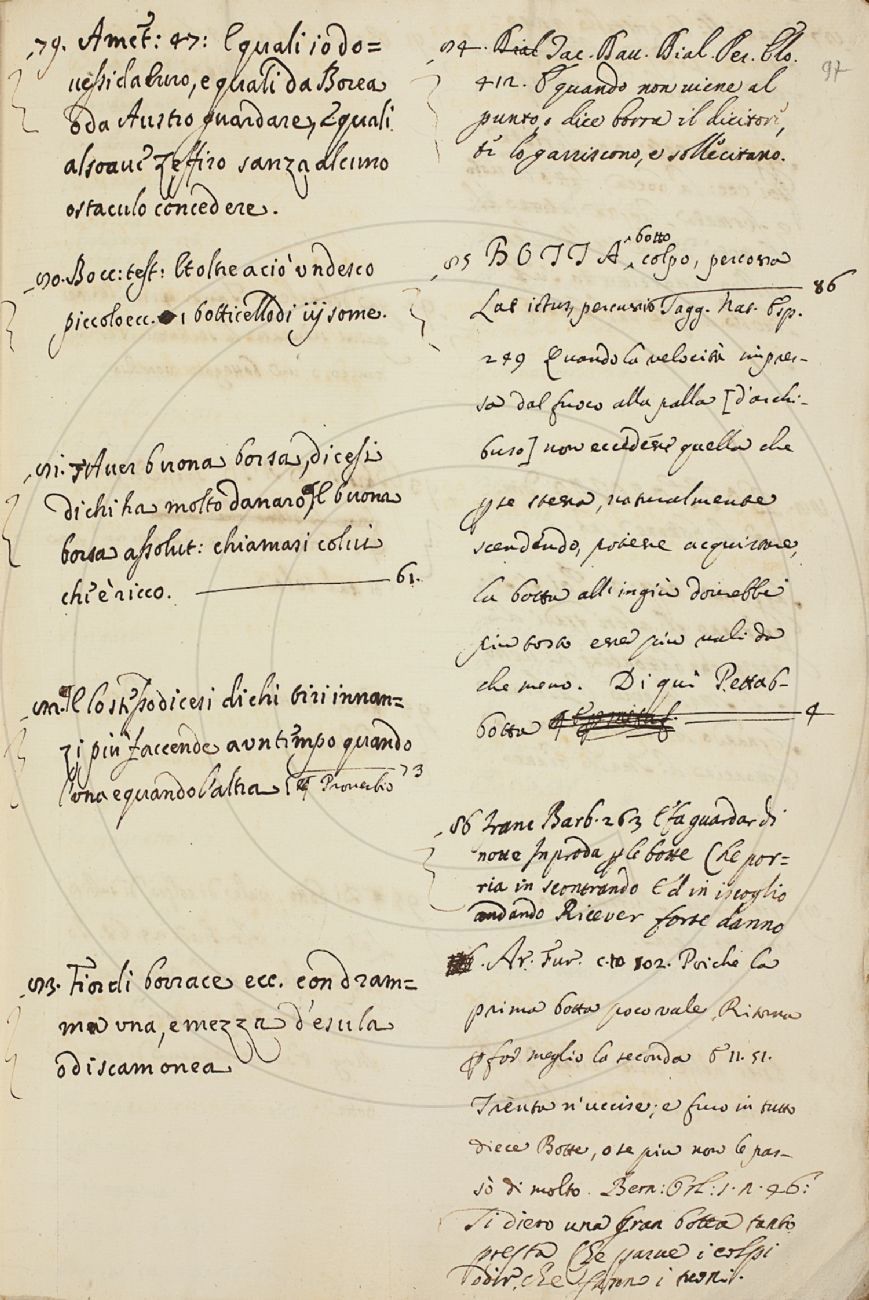 79. Amet: 47: E quali io do=
vessi da Euro, e quali da Borea
o da Austro guardare, E quali
al soave Zeffiro sanza alcuno
ostaculo concedere.
80. Bocc: test: E tolre a ciò un desco
piccolo ecc. 1 botticello di iij some.
81. Aver buona borsa, dicesi
di chi ha molto danaro, E buona
borsa assolut: chiamasi colui
ch'è ricco. 61.
82. E lo stesso dicesi di chi tiri innan=
zi più faccende a un tempo quando
l'una e quando l'altra Proverbio 73
83. Fior di borrace ecc. con dram=
ma una, e mezza d'esula
o di scamonea
97
84. Jac. Bau. Bial. Per. Glo.
412. E quando non viene al
punto, o dice borra il dicitori,
ti lo garriscono, e sollecitano.
85 BOTTA botto colpo, percossa
86
Lat ictus, percussio Sagg. Nat. Esp.
249 Quando la velocità impres-
sa dal fuoco alla palla [d'archi-
buso] non eccedere quella che
per se stessa, naturalmente
scendendo, potesse acquistare,
la botta all'ingiù dovrebbe
più tosto esser più valida
che meno. Di quì Pettab-
botta 4
86 Franc Barb. 263 E fa guardar di
notte In proda per le botte Che por=
ria in scontrando Ed in iscoglio
andando Ricever forte danno
Ar. Fur. c. 10 102. Poichè la
prima botta poco vale, Ritorna
per far meglio la seconda E 11. 51.
Trenta n'uccise; e furo in tutto
diece Botte, o se più non le pas-
sò di molto. Bern: Orl: 1. 2. 46:
Ti diero una gran botta tanto
presta Che parve i colpi
o dir, che fanno i tuoni.